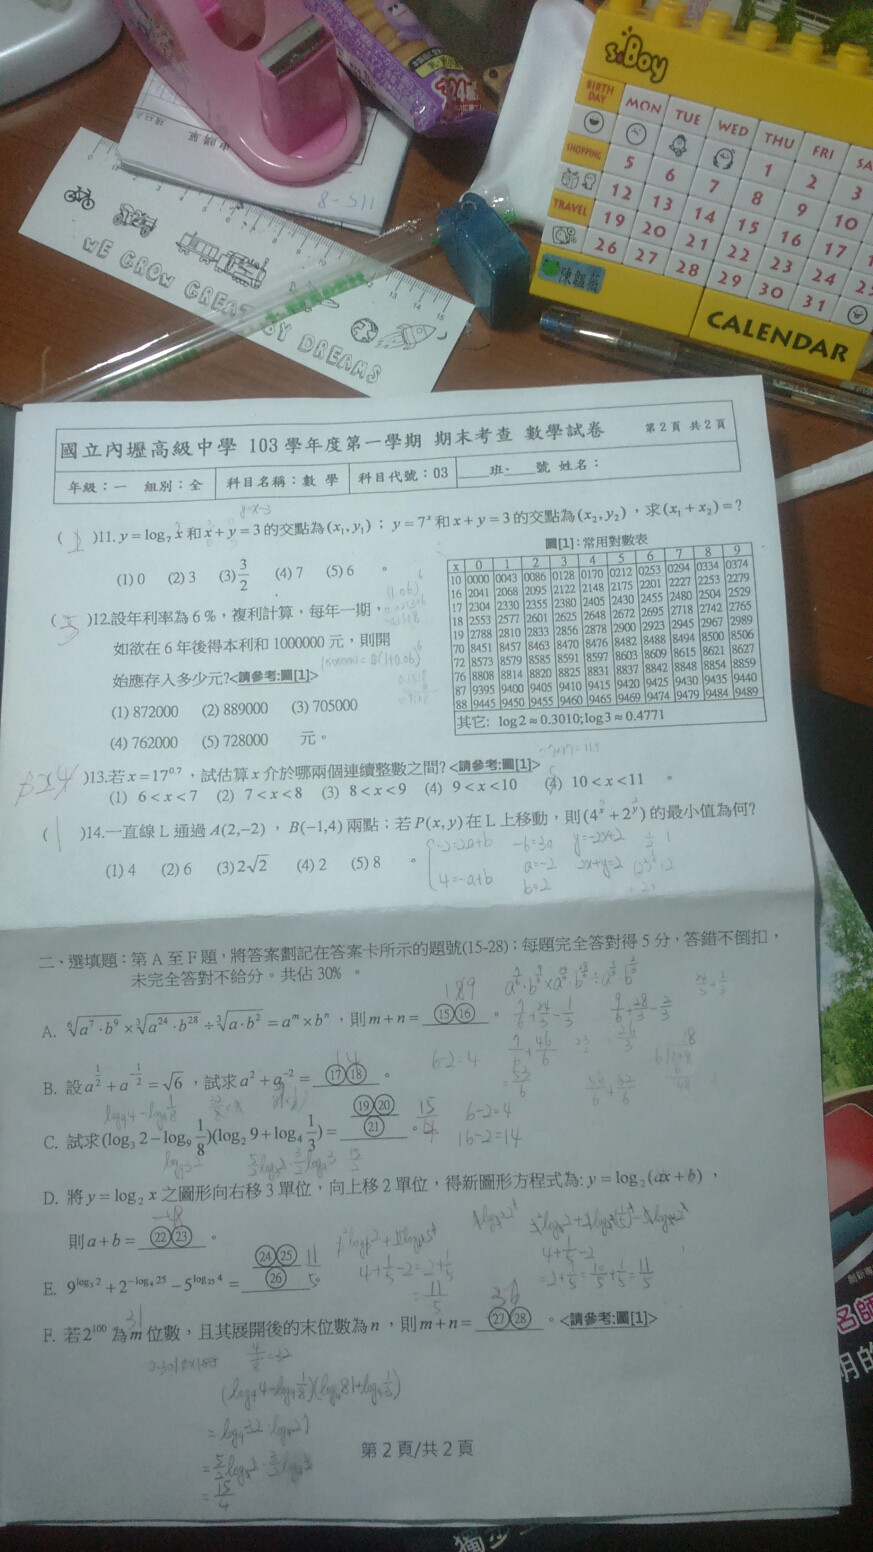 s.Boy
BIRTH DAY MON TUE WED THU FRI SA
1 2 3
SHOPPING 5 6 7 8 9 10
12 13 14 15 16 17
TRAVEL 19 20 21 22 23 24 25
26 27 28 29 30 31
陳韻薇
CALENDAR
WE GROW GREAT BY DREAMS
國立內壢高級中學 103 學年度第一學期 期末考查 數學試卷 第2頁 共2頁
年級：一 組別：全 科目名稱：數 學 科目代號：03 ____班. ____號 姓名：
( 1 )11. y = log₇ x 和 x + y = 3 的交點為 (x₁, y₁)；y = 7ˣ 和 x + y = 3 的交點為 (x₂, y₂)，求 (x₁ + x₂) = ？
(1) 0 (2) 3 (3) 3/2 (4) 7 (5) 6 。
圖[1]：常用對數表
x 0 1 2 3 4 5 6 7 8 9
10 0000 0043 0086 0128 0170 0212 0253 0294 0334 0374
16 2041 2068 2095 2122 2148 2175 2201 2227 2253 2279
17 2304 2330 2355 2380 2405 2430 2455 2480 2504 2529
18 2553 2577 2601 2625 2648 2672 2695 2718 2742 2765
19 2788 2810 2833 2856 2878 2900 2923 2945 2967 2989
70 8451 8457 8463 8470 8476 8482 8488 8494 8500 8506
72 8573 8579 8585 8591 8597 8603 8609 8615 8621 8627
76 8808 8814 8820 8825 8831 8837 8842 8848 8854 8859
87 9395 9400 9405 9410 9415 9420 9425 9430 9435 9440
88 9445 9450 9455 9460 9465 9469 9474 9479 9484 9489
其它: log 2 ≈ 0.3010; log 3 ≈ 0.4771
( 5 )12. 設年利率為 6 %，複利計算，每年一期，
如欲在 6 年後得本利和 1000000 元，則開
始應存入多少元?<請參考:圖[1]>
(1) 872000 (2) 889000 (3) 705000
(4) 762000 (5) 728000 元。
)13. 若 x = 17^0.7，試估算 x 介於哪兩個連續整數之間? <請參考:圖[1]>
(1) 6 < x < 7 (2) 7 < x < 8 (3) 8 < x < 9 (4) 9 < x < 10 (4) 10 < x < 11 。
( 1 )14. 一直線 L 通過 A(2,−2)，B(−1,4) 兩點；若 P(x, y) 在 L 上移動，則 (4ˣ + 2ʸ) 的最小值為何?
(1) 4 (2) 6 (3) 2√2 (4) 2 (5) 8 。
-2=2a+b -6=3a y=-2x+2
4=-a+b a=-2 2x+y=2
b=2
二、選填題：第 A 至 F 題，將答案劃記在答案卡所示的題號(15-28)；每題完全答對得 5 分，答錯不倒扣，
未完全答對不給分。共佔 30% 。
A. ⁶√(a⁷·b⁹) × ³√(a²⁴·b²⁸) ÷ ³√(a·b²) = aᵐ × bⁿ，則 m + n = ⑮⑯ 。
B. 設 a^(1/2) + a^(-1/2) = √6，試求 a² + a⁻² = ⑰⑱ 。
6-2=4
C. 試求 (log₃ 2 − log₉ 1/8)(log₂ 9 + log₄ 1/3) = ⑲⑳/㉑ 。 15/4
6-2=4
16-2=14
D. 將 y = log₂ x 之圖形向右移 3 單位，向上移 2 單位，得新圖形方程式為: y = log₂(ax + b)，
則 a + b = ㉒㉓ 。
E. 9^(log₃ 2) + 2^(−log₄ 25) − 5^(log₂₅ 4) = ㉔㉕/㉖ 11/5
4+1/5-2=2+1/5
=11/5
4+1/5-2
=2+1/5=10/5+1/5=11/5
F. 若 2¹⁰⁰ 為 m 位數，且其展開後的末位數為 n，則 m + n = ㉗㉘ 。<請參考:圖[1]>
31
=15/4
第 2 頁/共 2 頁
名師